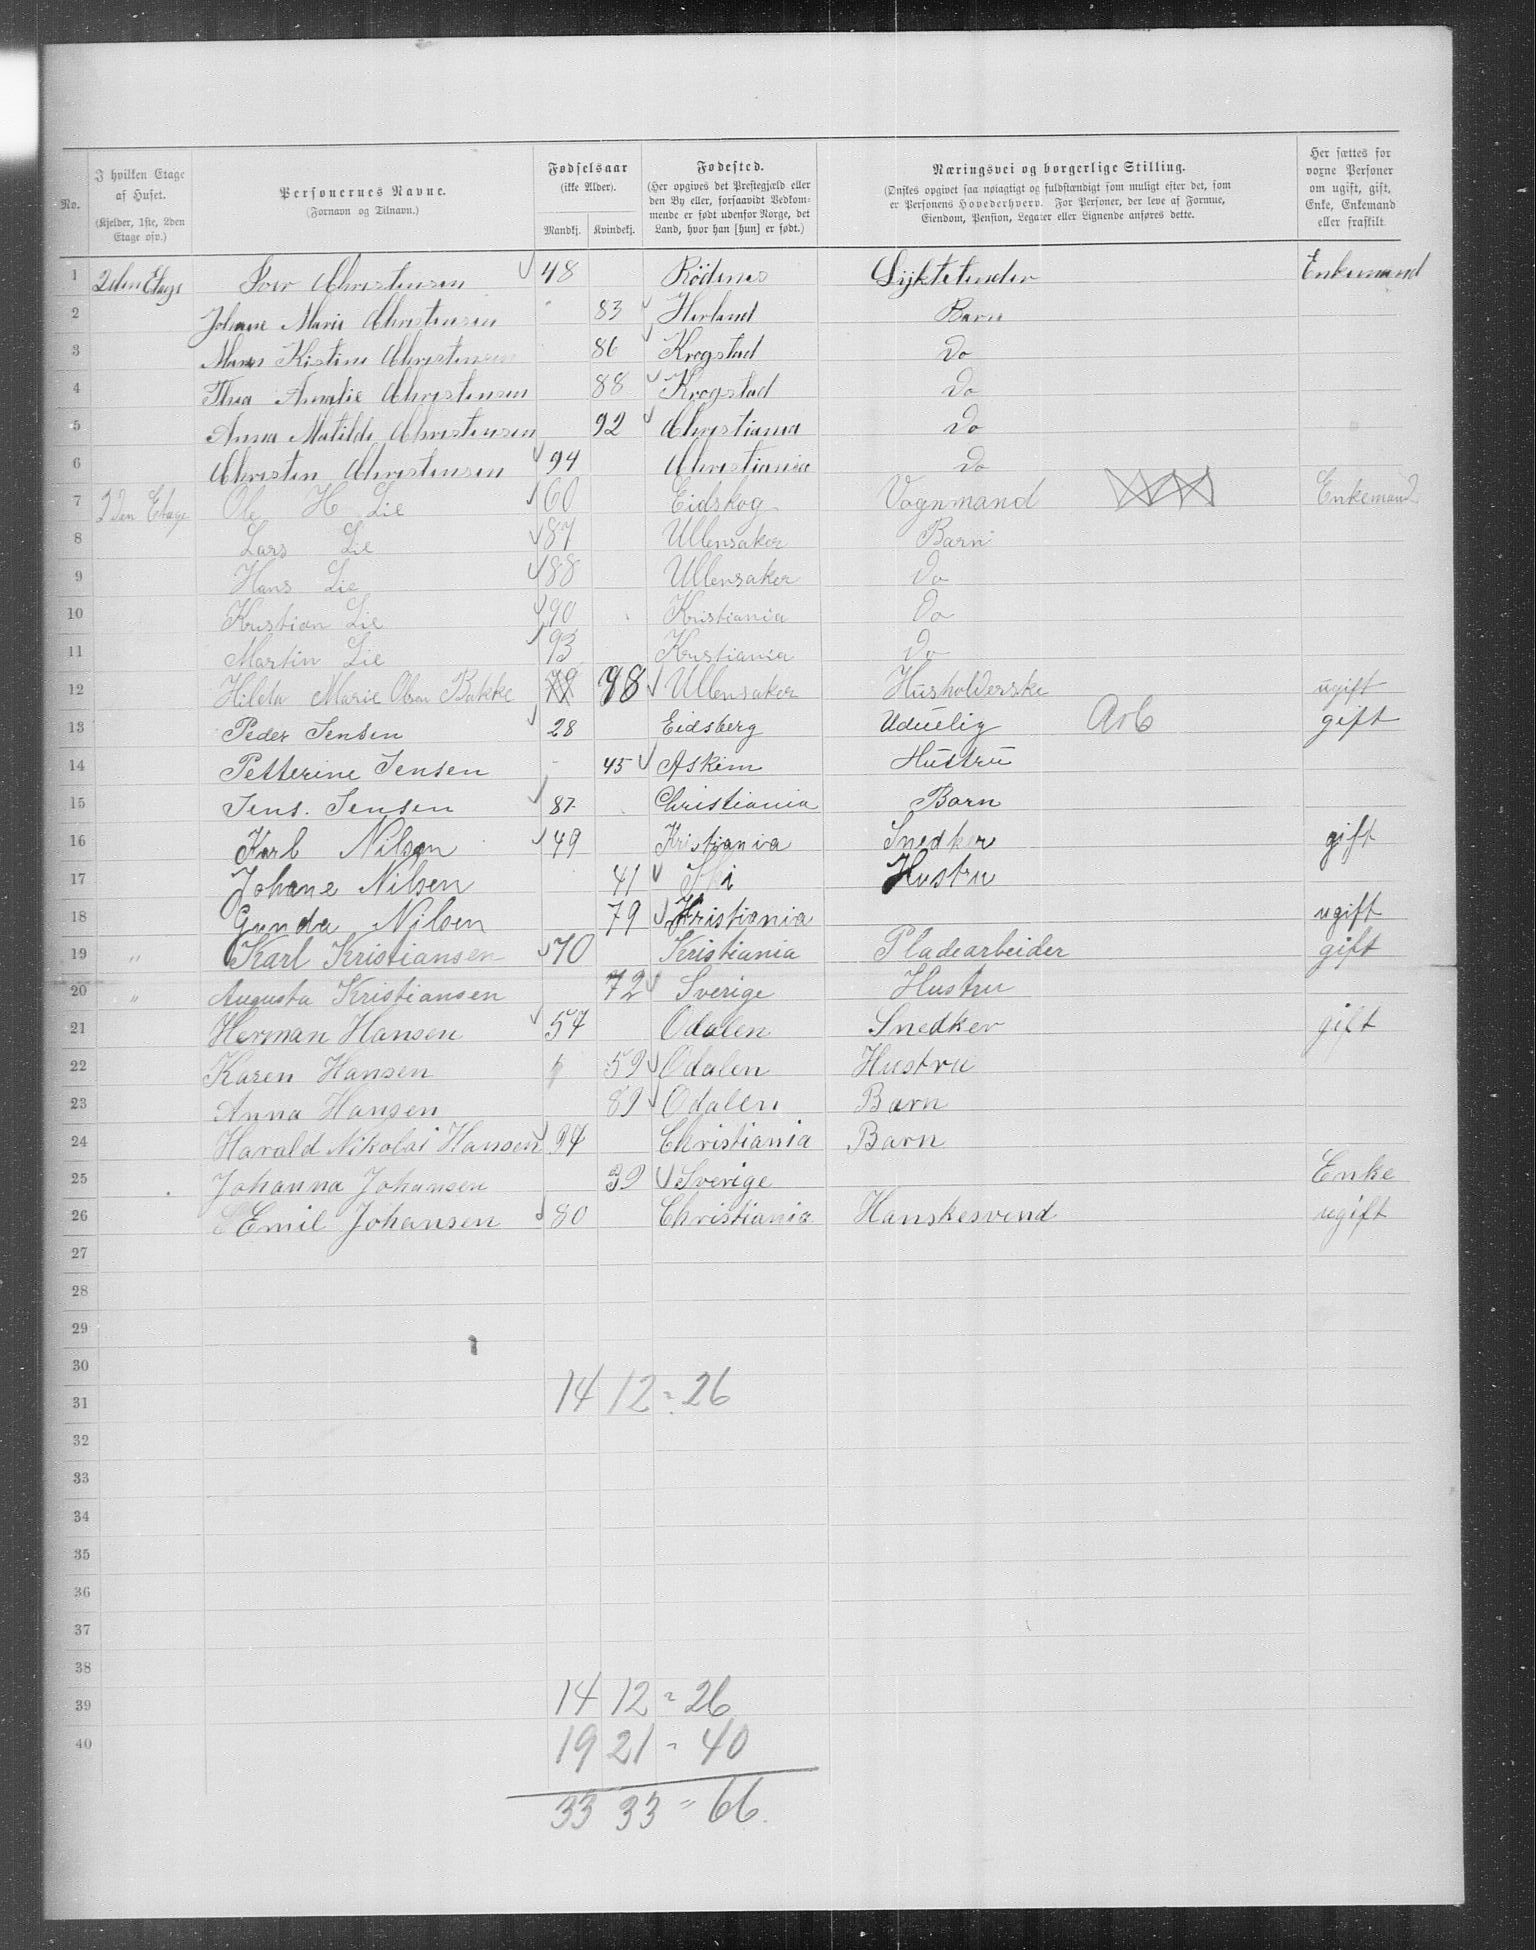 No. I hvilken Etage af Huset. (Kjelder, 1ste, 2den Etage osv.) Personernes Navne. (Fornavn og Tilnavn.) Fødselsaar (ikke Alder). Mandkj. Kvindekj. Fødested. (Her opgives det Prestegjæld eller den By eller, forsaavidt Vedkommende er født udenfor Norge, det Land, hvor han [hun] er født.) Næringsvei og borgerlige Stilling. (Ønskes opgivet saa nøiagtigt og fuldstændigt som muligt efter det, som er Personens Hovederhverv. For Personer, der leve af Formue, Eiendom, Pension, Legater eller Lignende anføres dette. Her sættes for voxne Personer om ugift, gift, Enke, Enkemand eller fraskilt.
1 2den Etage Iver Christensen 48 Rödenes Lyktetender Enkemand
2 Johane Marie Christensen 83 Herland Barn
3 Kistine Christensen 86 Krogstad Do
4 Thea Amalie Christensen 88 Krogstad Do
5 Anna Matilde Christensen 92 Christiania Do
6 Christen Christensen 94 Christiania Do
7 2den Etage Ole H Lie 60 Eidskog Vognmand Enkemand
8 Lars Lie 87 Ullensaker Barn
9 Hans Lie 88 Ullensaker Do
10 Kristian Lie 90 Kristiania Do
11 Martin Lie 93 Kristiania Do
12 Hilda Marie Olsen Bakke 78 Ullensaker Husholderske ugift
13 Peder Jensen 28 Eidsberg Uduelig Arb gift
14 Petterine Jensen 45 Askim Hustru
15 Jens. Jensen 87 Christiania Barn
16 Karl Nilsen 49 Kristiania Snedker gift
17 Johane Nilsen 41 Ski Hustru
18 Gunda Nilsen 79 Kristiania ugift
19 " Karl Kristiansen 70 Kristiania Pladearbeider gift
20 " Augusta Kristiansen 72 Sverige Hustru
21 Herman Hansen 57 Odalen Snedker gift
22 Karen Hansen 59 Odalen Hustru
23 Anna Hansen 89 Odalen Barn
24 Harald Nikolai Hansen 94 Christiania Barn
25 Johanna Johansen 39 Sverige Enke
26 Emil Johansen 80 Christiania Hanskesvend ugift
27
28
29
30
31 14 12 = 26
32
33
34
35
36
37
38
39 14 12 = 26
40 19 21 = 40
33 33 = 66.